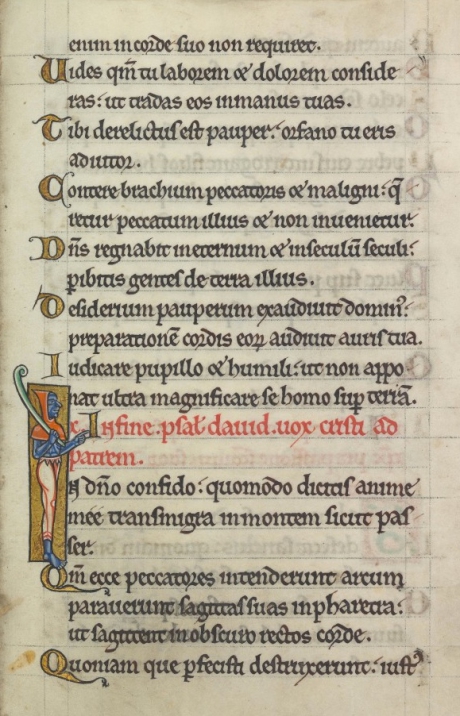 enim in corde suo non requiret.
Uides qm̄ tu laborem & dolorem conside
ras: ut tradas eos in manus tuas.
Tibi derelictus est pauper: orfano tu eris
adiutor.
Contere brachium peccatoris & maligni: q̄
retur peccatum illius & non inuenietur.
Dn̄s regnabit ineternum & inseculū seculi:
ꝑibitis gentes de terra illius.
Desiderium pauperum exaudiuit domin᷒:
preparationē cordis eoꝝ audiuit auris tua.
Iudicare pupillo & humili: ut non appo
nat ultra magnificare se homo suꝑ terrā.
x. In fine. psal. dauid. uox cristi ad
patrem.
In dn̄o confido: quomodo dicitis anime
mee transmigra in montem sicut pas
ser.
Qm̄ ecce peccatores intenderunt arcum
parauerunt sagittas suas in pharetra:
ut sagittent in obscuro rectos corde.
Quoniam que ꝑfecisti destruxerunt: iust᷒